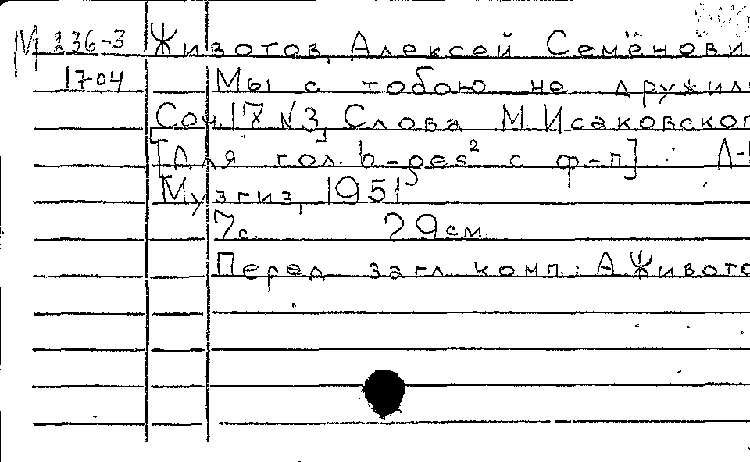 М 336-3 Животов, Алексей Семёнови
1704 Мы с тобою не дружил
Соч. 17 №3. Слова М. Исаковског
[Для гол. b-ges² с ф-п]. Л-
Музгиз, 1951
7с. 29см.
Перед загл. комп.: А. Живото